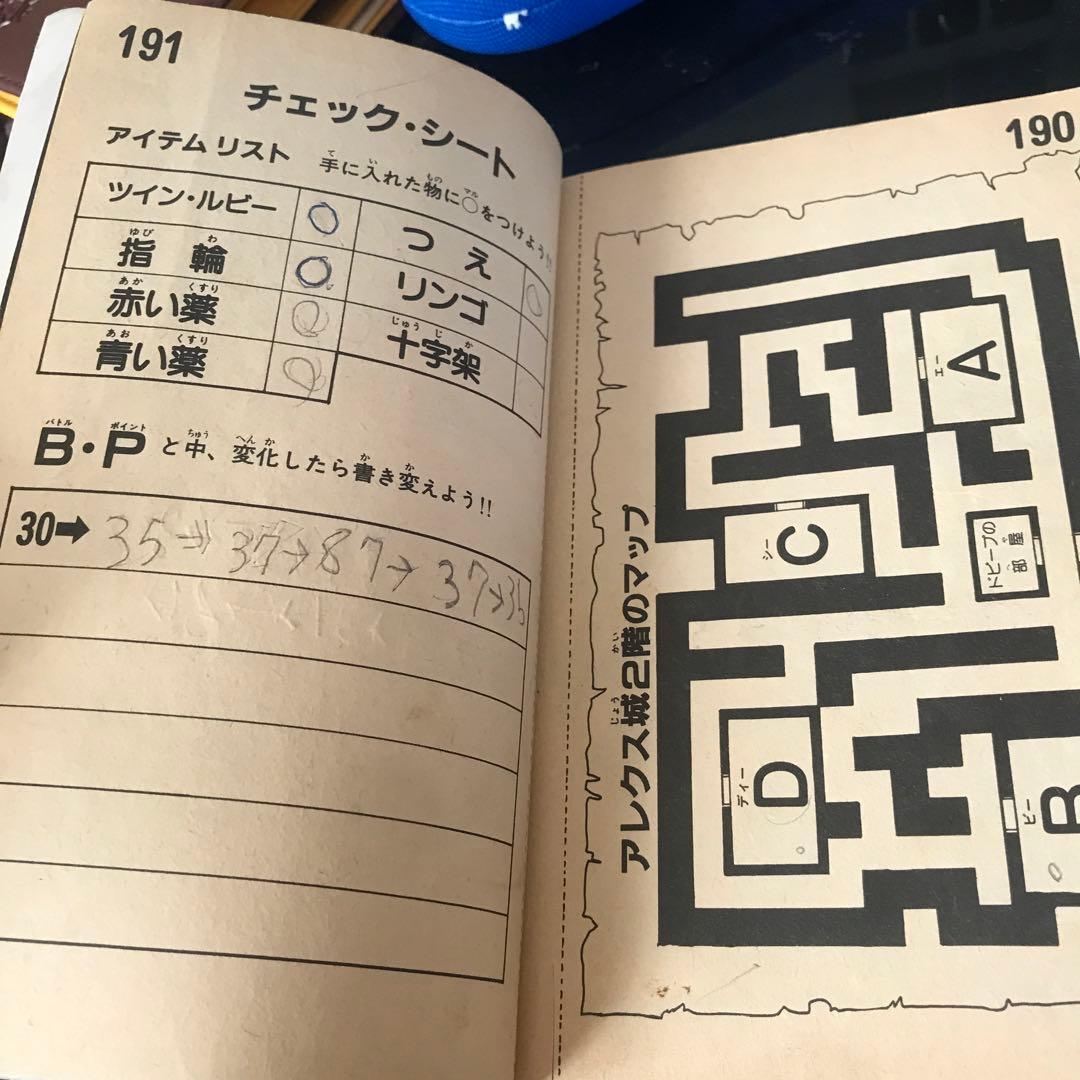 191
チェック・シート
アイテム リスト 手に入れた物に○をつけよう!!
ツイン・ルビー
指輪
赤い薬
青い薬
つえ
リンゴ
十字架
B・Pと中、変化したら書き変えよう!!
30→ 35⇒37→87→37→35
190
アレクス城2階のマップ
A
エー
C
シー
ドビーブの部屋
D
ディー
B
ビー